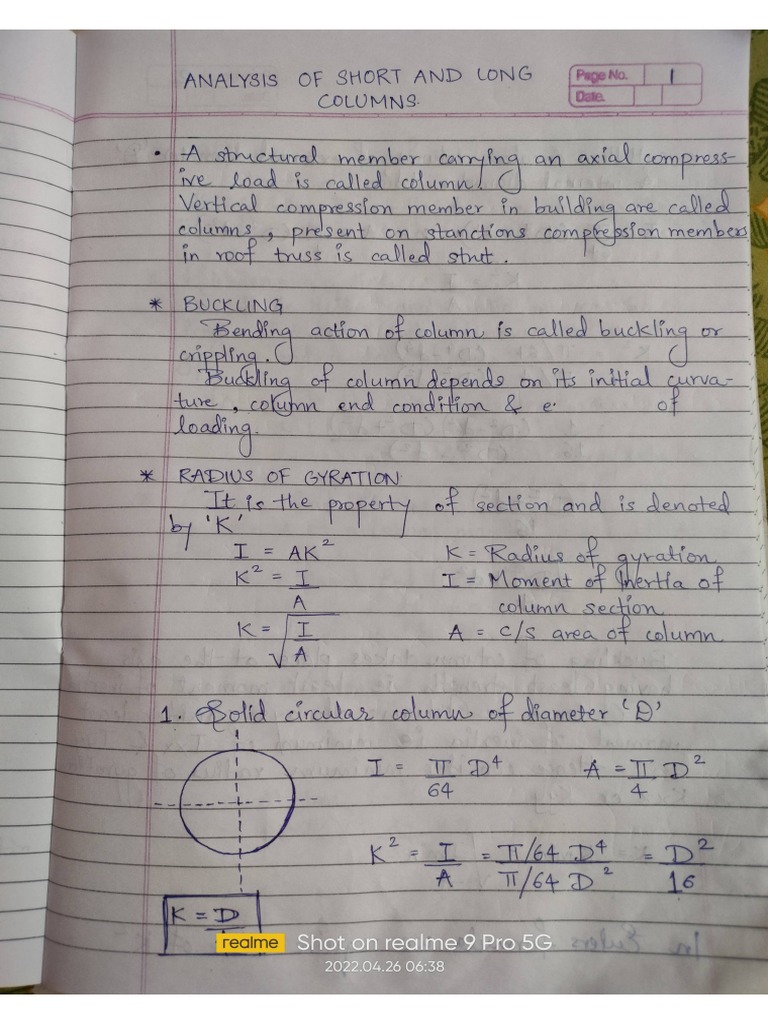 ANALYSIS OF SHORT AND LONG
COLUMNS.
Page No. 1
Date.
• A structural member carrying an axial compress-
ive load is called column.
Vertical compression member in building are called
columns, present on stanctions compression members
in roof truss is called strut.
* BUCKLING
Bending action of column is called buckling or
crippling.
Buckling of column depends on its initial curva-
ture, column end condition & e. of
loading.
* RADIUS OF GYRATION
It is the property of section and is denoted
by 'K'
I = AK² K = Radius of gyration
K² = I/A I = Moment of Inertia of
column section
K = √(I/A) A = c/s area of column
1. Solid circular column of diameter 'D'
I = π/64 D⁴ A = π/4 D²
K² = I/A = π/64 D⁴ / π/64 D² = D²/16
K = D
realme Shot on realme 9 Pro 5G
2022.04.26 06:38